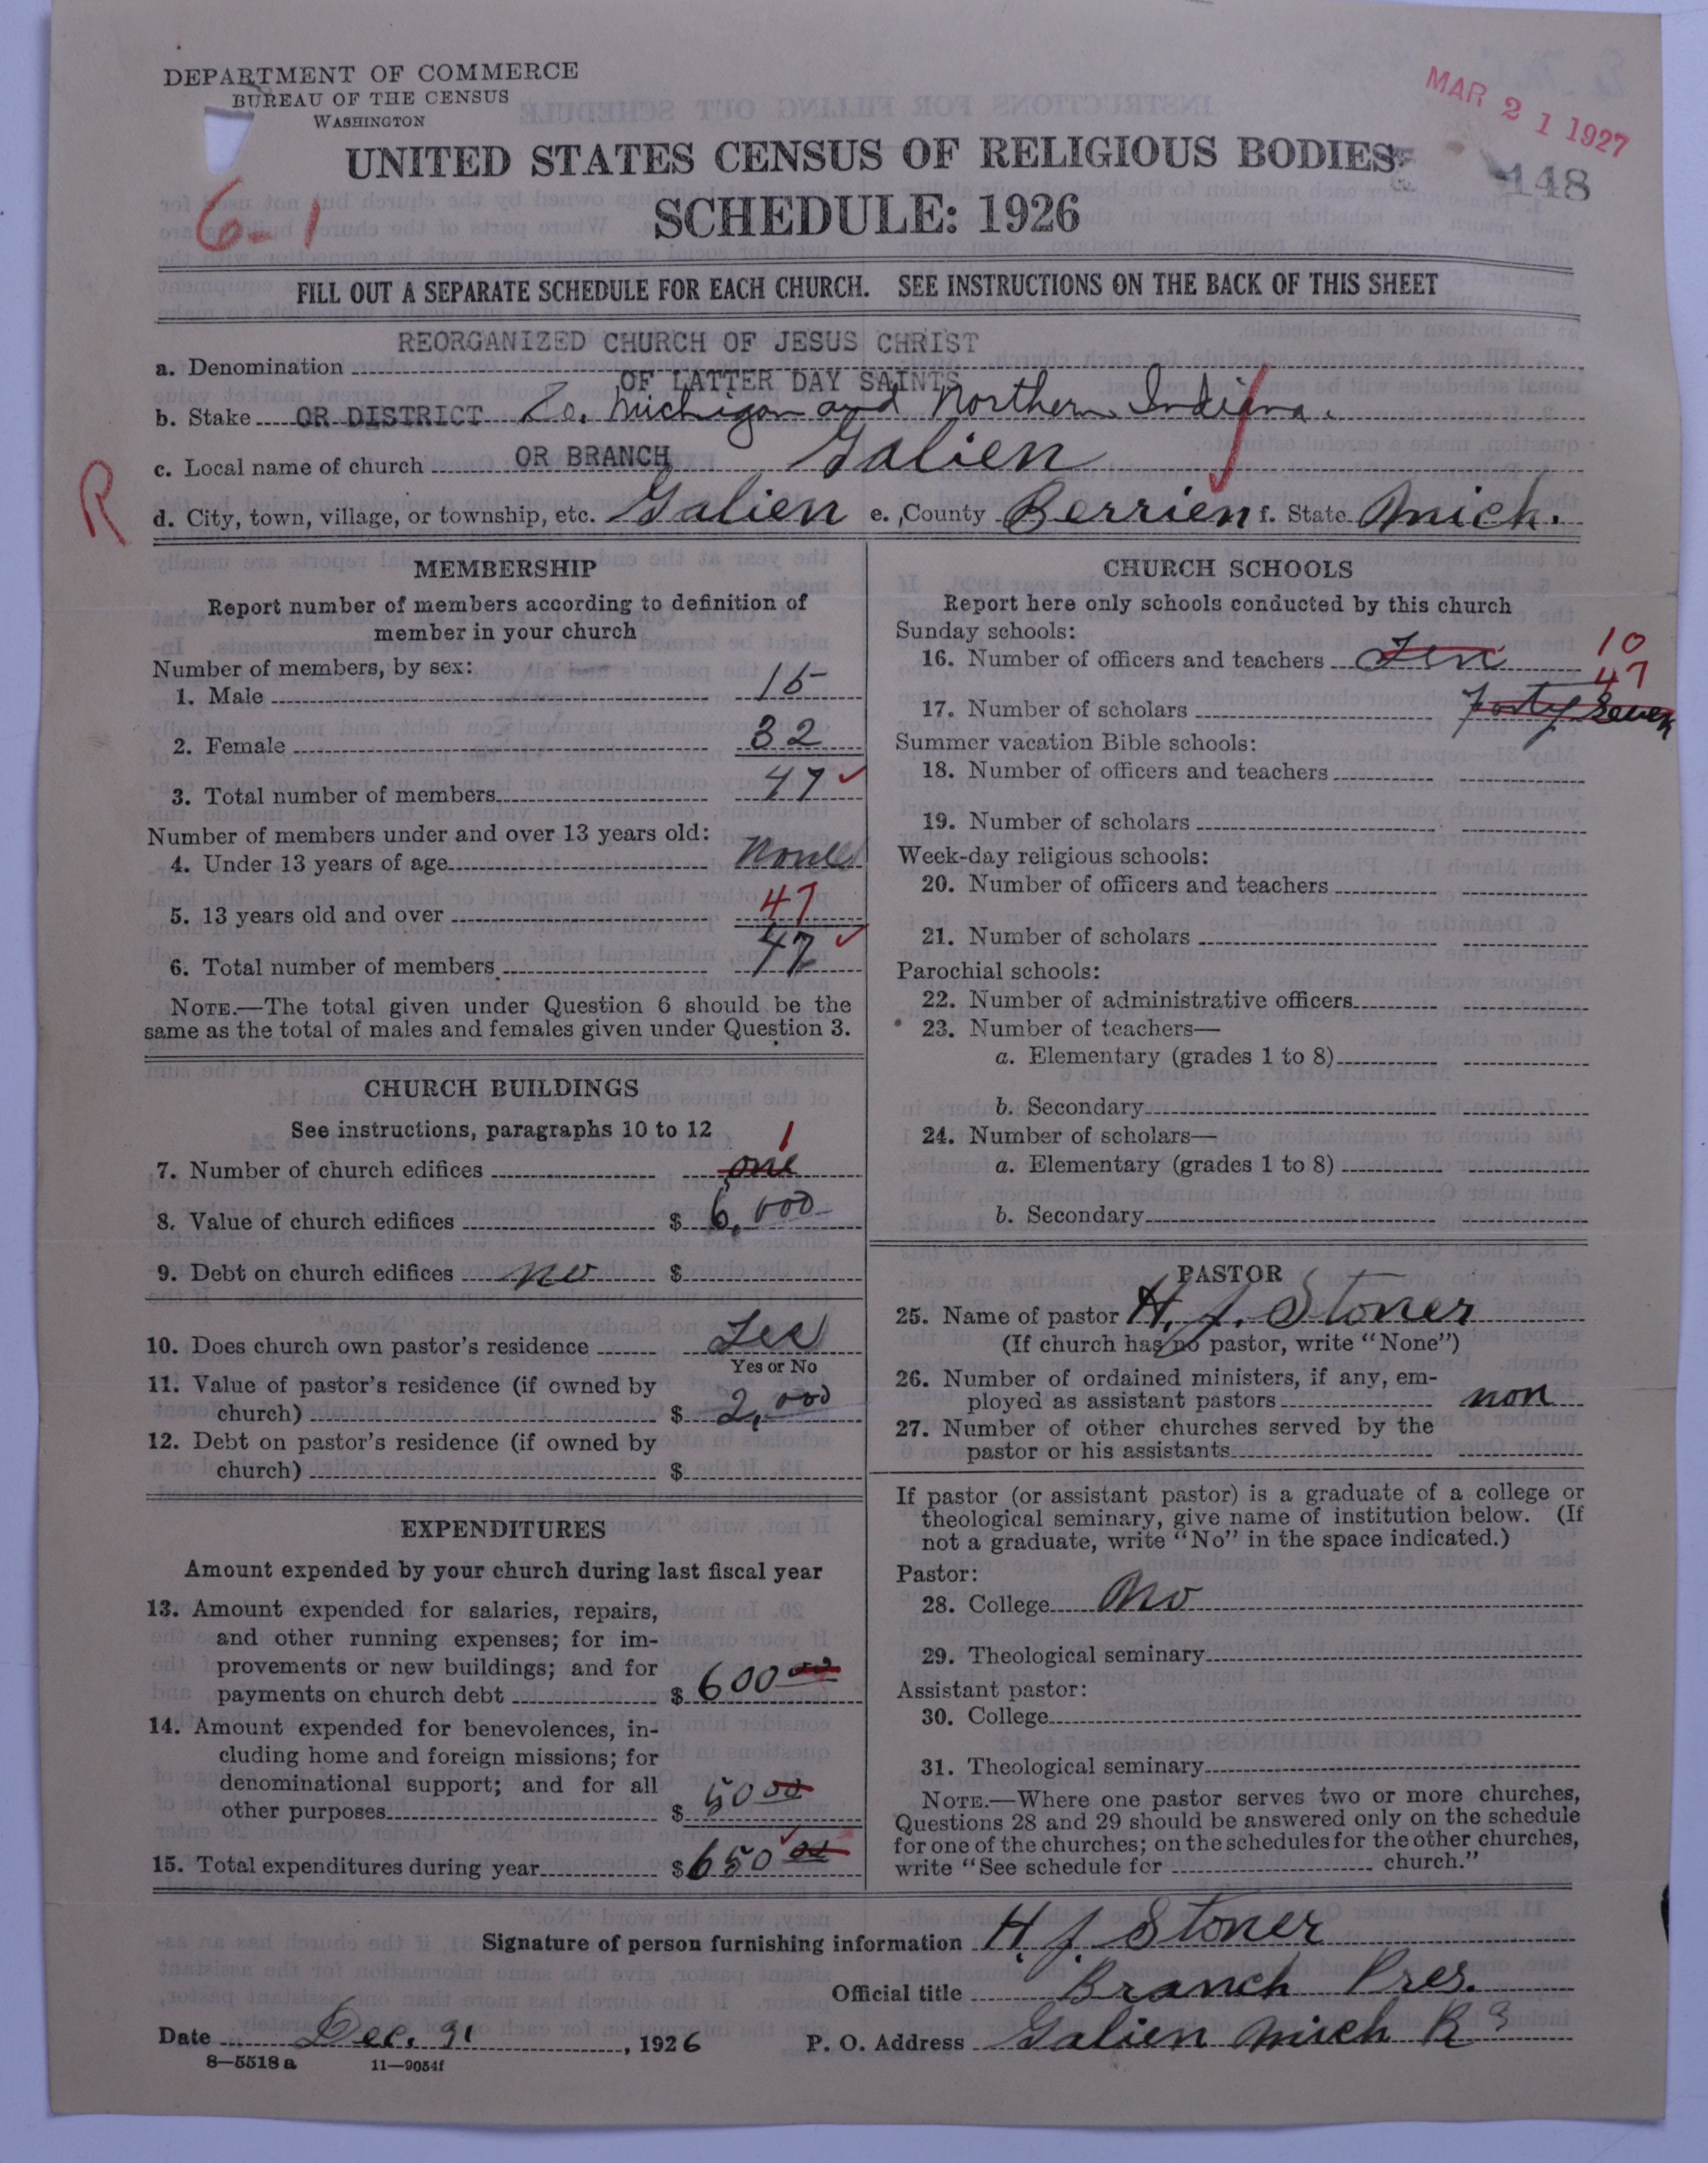 DEPARTMENT OF COMMERCE
BUREAU OF THE CENSUS
WASHINGTON
MAR 21 1927
UNITED STATES CENSUS OF RELIGIOUS BODIES
148
6-1
SCHEDULE: 1926
FILL OUT A SEPARATE SCHEDULE FOR EACH CHURCH. SEE INSTRUCTIONS ON THE BACK OF THIS SHEET
REORGANIZED CHURCH OF JESUS CHRIST
a. Denomination
OF LATTER DAY SAINTS
b. Stake OR DISTRICT So. Michigan and Northern Indiana.
c. Local name of church OR BRANCH Galien
R
d. City, town, village, or township, etc. Galien e. County Berrien f. State Mich.
MEMBERSHIP
Report number of members according to definition of
member in your church
Number of members, by sex:
1. Male 15
2. Female 32
3. Total number of members 47
Number of members under and over 13 years old:
4. Under 13 years of age None
5. 13 years old and over 47
6. Total number of members 47
NOTE.—The total given under Question 6 should be the
same as the total of males and females given under Question 3.
CHURCH BUILDINGS
See instructions, paragraphs 10 to 12
1
7. Number of church edifices one
8. Value of church edifices $ 6,000
9. Debt on church edifices no $
10. Does church own pastor's residence Yes
Yes or No
11. Value of pastor's residence (if owned by
church) $ 2,000
12. Debt on pastor's residence (if owned by
church) $
EXPENDITURES
Amount expended by your church during last fiscal year
13. Amount expended for salaries, repairs,
and other running expenses; for im-
provements or new buildings; and for
payments on church debt $ 600 00
14. Amount expended for benevolences, in-
cluding home and foreign missions; for
denominational support; and for all
other purposes $ 50 00
15. Total expenditures during year $ 650 00
CHURCH SCHOOLS
Report here only schools conducted by this church
Sunday schools:
10
16. Number of officers and teachers Ten
47
17. Number of scholars Forty Seven
Summer vacation Bible schools:
18. Number of officers and teachers
19. Number of scholars
Week-day religious schools:
20. Number of officers and teachers
21. Number of scholars
Parochial schools:
22. Number of administrative officers
23. Number of teachers—
a. Elementary (grades 1 to 8)
b. Secondary
24. Number of scholars—
a. Elementary (grades 1 to 8)
b. Secondary
PASTOR
25. Name of pastor H. J. Stoner
(If church has no pastor, write "None")
26. Number of ordained ministers, if any, em-
ployed as assistant pastors non
27. Number of other churches served by the
pastor or his assistants
If pastor (or assistant pastor) is a graduate of a college or
theological seminary, give name of institution below. (If
not a graduate, write "No" in the space indicated.)
Pastor:
28. College No
29. Theological seminary
Assistant pastor:
30. College
31. Theological seminary
NOTE.—Where one pastor serves two or more churches,
Questions 28 and 29 should be answered only on the schedule
for one of the churches; on the schedules for the other churches,
write "See schedule for church."
Signature of person furnishing information H. J. Stoner
Official title Branch Pres.
Date Dec. 31, 1926 P. O. Address Galien Mich R 3
8—5518 a 11—9054f